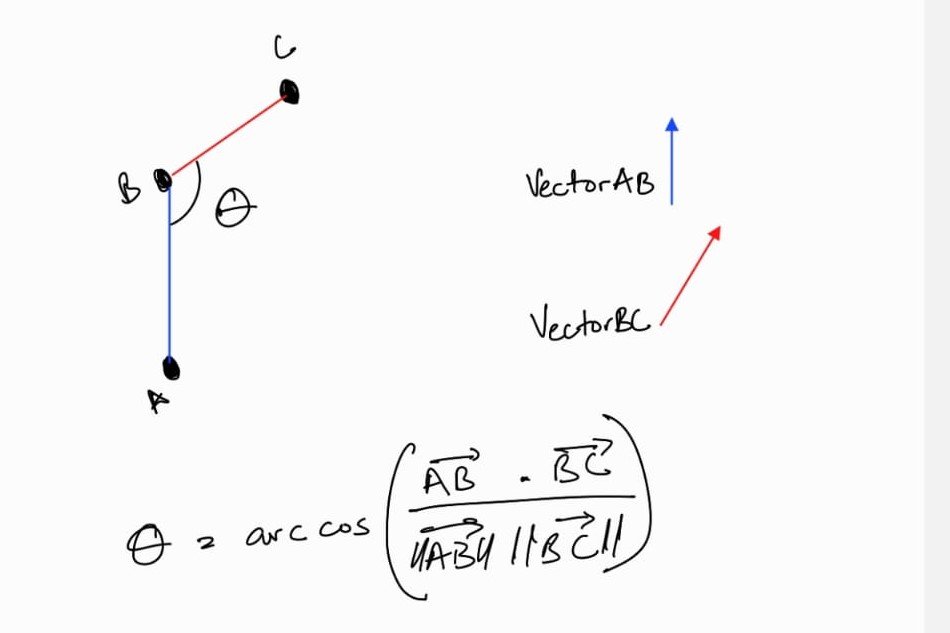 C
B
θ
A
VectorAB
VectorBC
θ = arccos( AB⃗ . BC⃗ / ||AB⃗|| ||BC⃗|| )